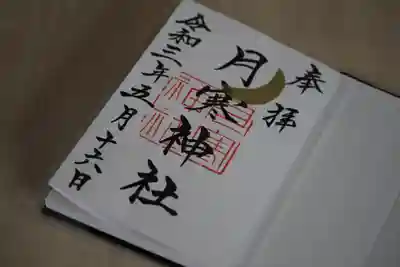 奉拝
月寒神社
令和三年五月十六日